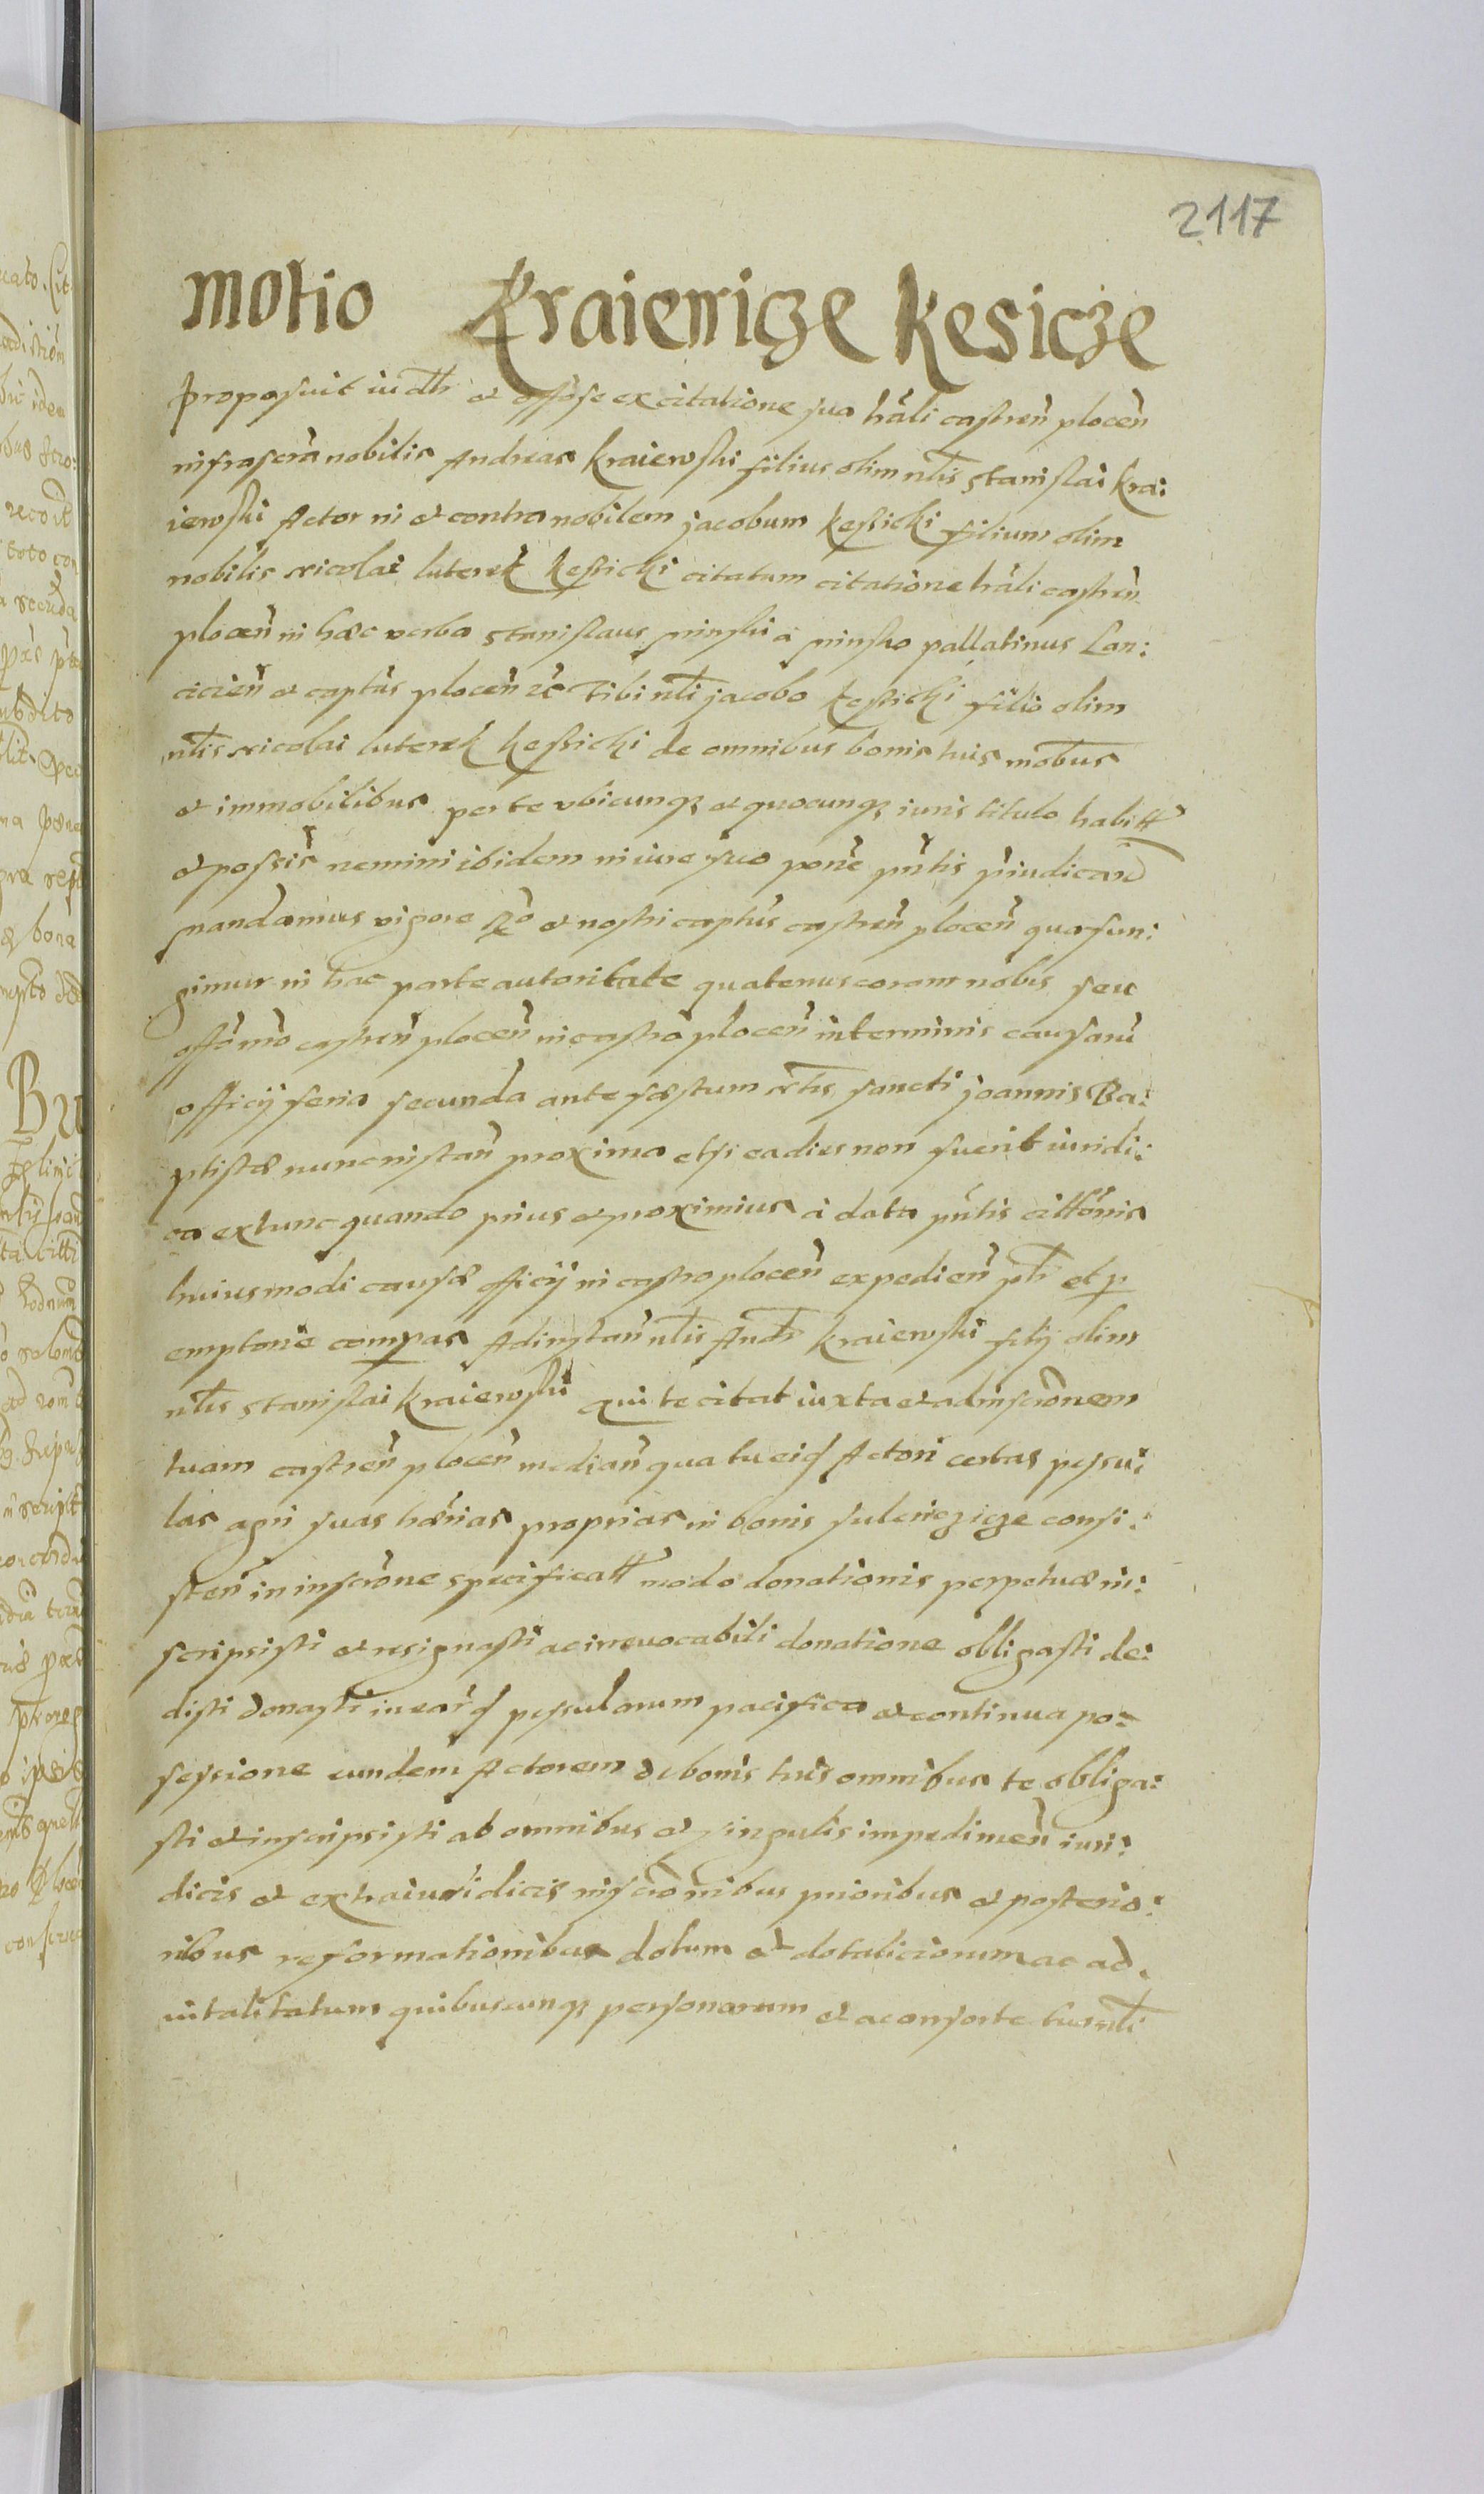 2117
motio Kraiewicze Kesicze
Proposuit iudlr et offose ex citatione sua hrali castren plocen
infrascra nobilis Andreas Kraiewski filius olim nlis Stanislai Krai
iewski Actor in et contra nobilem Jacobum Kessicki filium olim
nobilis Nicolai luterek Kessicki citatum citatione hrali castren
plocen in haec verba Stanislaus Minski a Minsko pallatinus Lan:
cicien et captus plocen rc Tibi nli Jacobo Kessicki filio olim
nlis Nicolai luterek Kessicki de omnibus bonis tuis mobus
et immobilibus per te vbicunq et quocunq iuris titulo habitt
et possis nemini ibidem in iure suo pone pntis priudicand
mandamus vigore et nostri captus castren plocen qua fun:
gimur in hac parte autoritate quatenus coram nobis seu
offo nro castren plocen in castro plocen in terminis causaru
officij feria secunda ante festum ntis sancti Joannis Ba:
ptistae nunc instan proxima et si ea dies non fuerit iuridi:
ca ex tunc quando prius et proximius a data pntis cittonis
huiusmodi causae officij in castro plocen expedien plr et p
emptorie compas Ad instan nlis Andr Kraiewski filij olim
nlis Stanislai Kraiewski qui te citat iuxta et ad inscronem
tuam castren plocen median qua tu eid Actori certas pessu:
las agri suas haerias proprias in bonis sulenczicze consi:
sten in inscrone specificatt modo donationis perpetuae in:
scripsisti et resignasti ac irreuocabili donatione obligasti de:
disti donasti in eard pessularum pacifica et continua po:
sessione eundem Actorem de bonis tuis omnibus te obliga:
sti et inscripsisti ab omnibus et singulis impedimen iuri:
dicis et extraiuridicis inscronibus prioribus et posterio:
ribus reformationibus dotum et dotaliciorum ac ad
uitalitatum quibuscunq personarum et a consorte tua nli